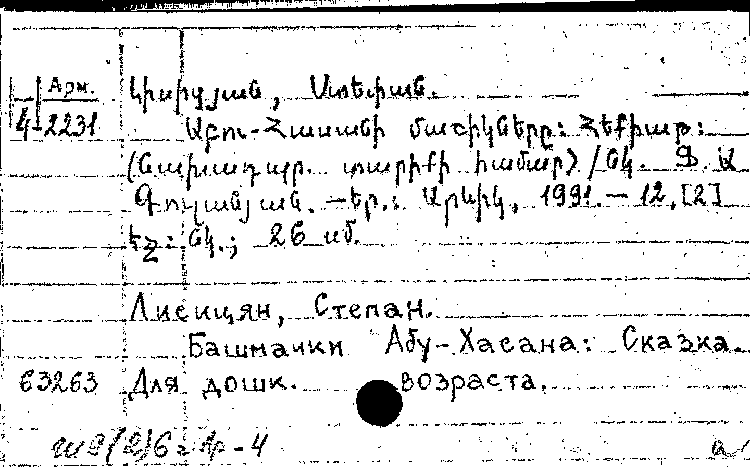 Арм.
4-2231
Լիսիցյան, Ստեփան.
Աբու-Հասանի մաշիկները: Հեքիաթ:
(Նախադպր. տարիքի համար) / Նկ. Ֆ. Ա
Գուլանյան. – Եր.: Արևիկ, 1991. – 12, [2]
էջ: նկ.; 26 սմ.
Лисицян, Степан.
Башмачки Абу-Хасана: Сказка.
63263 Для дошк. возраста.